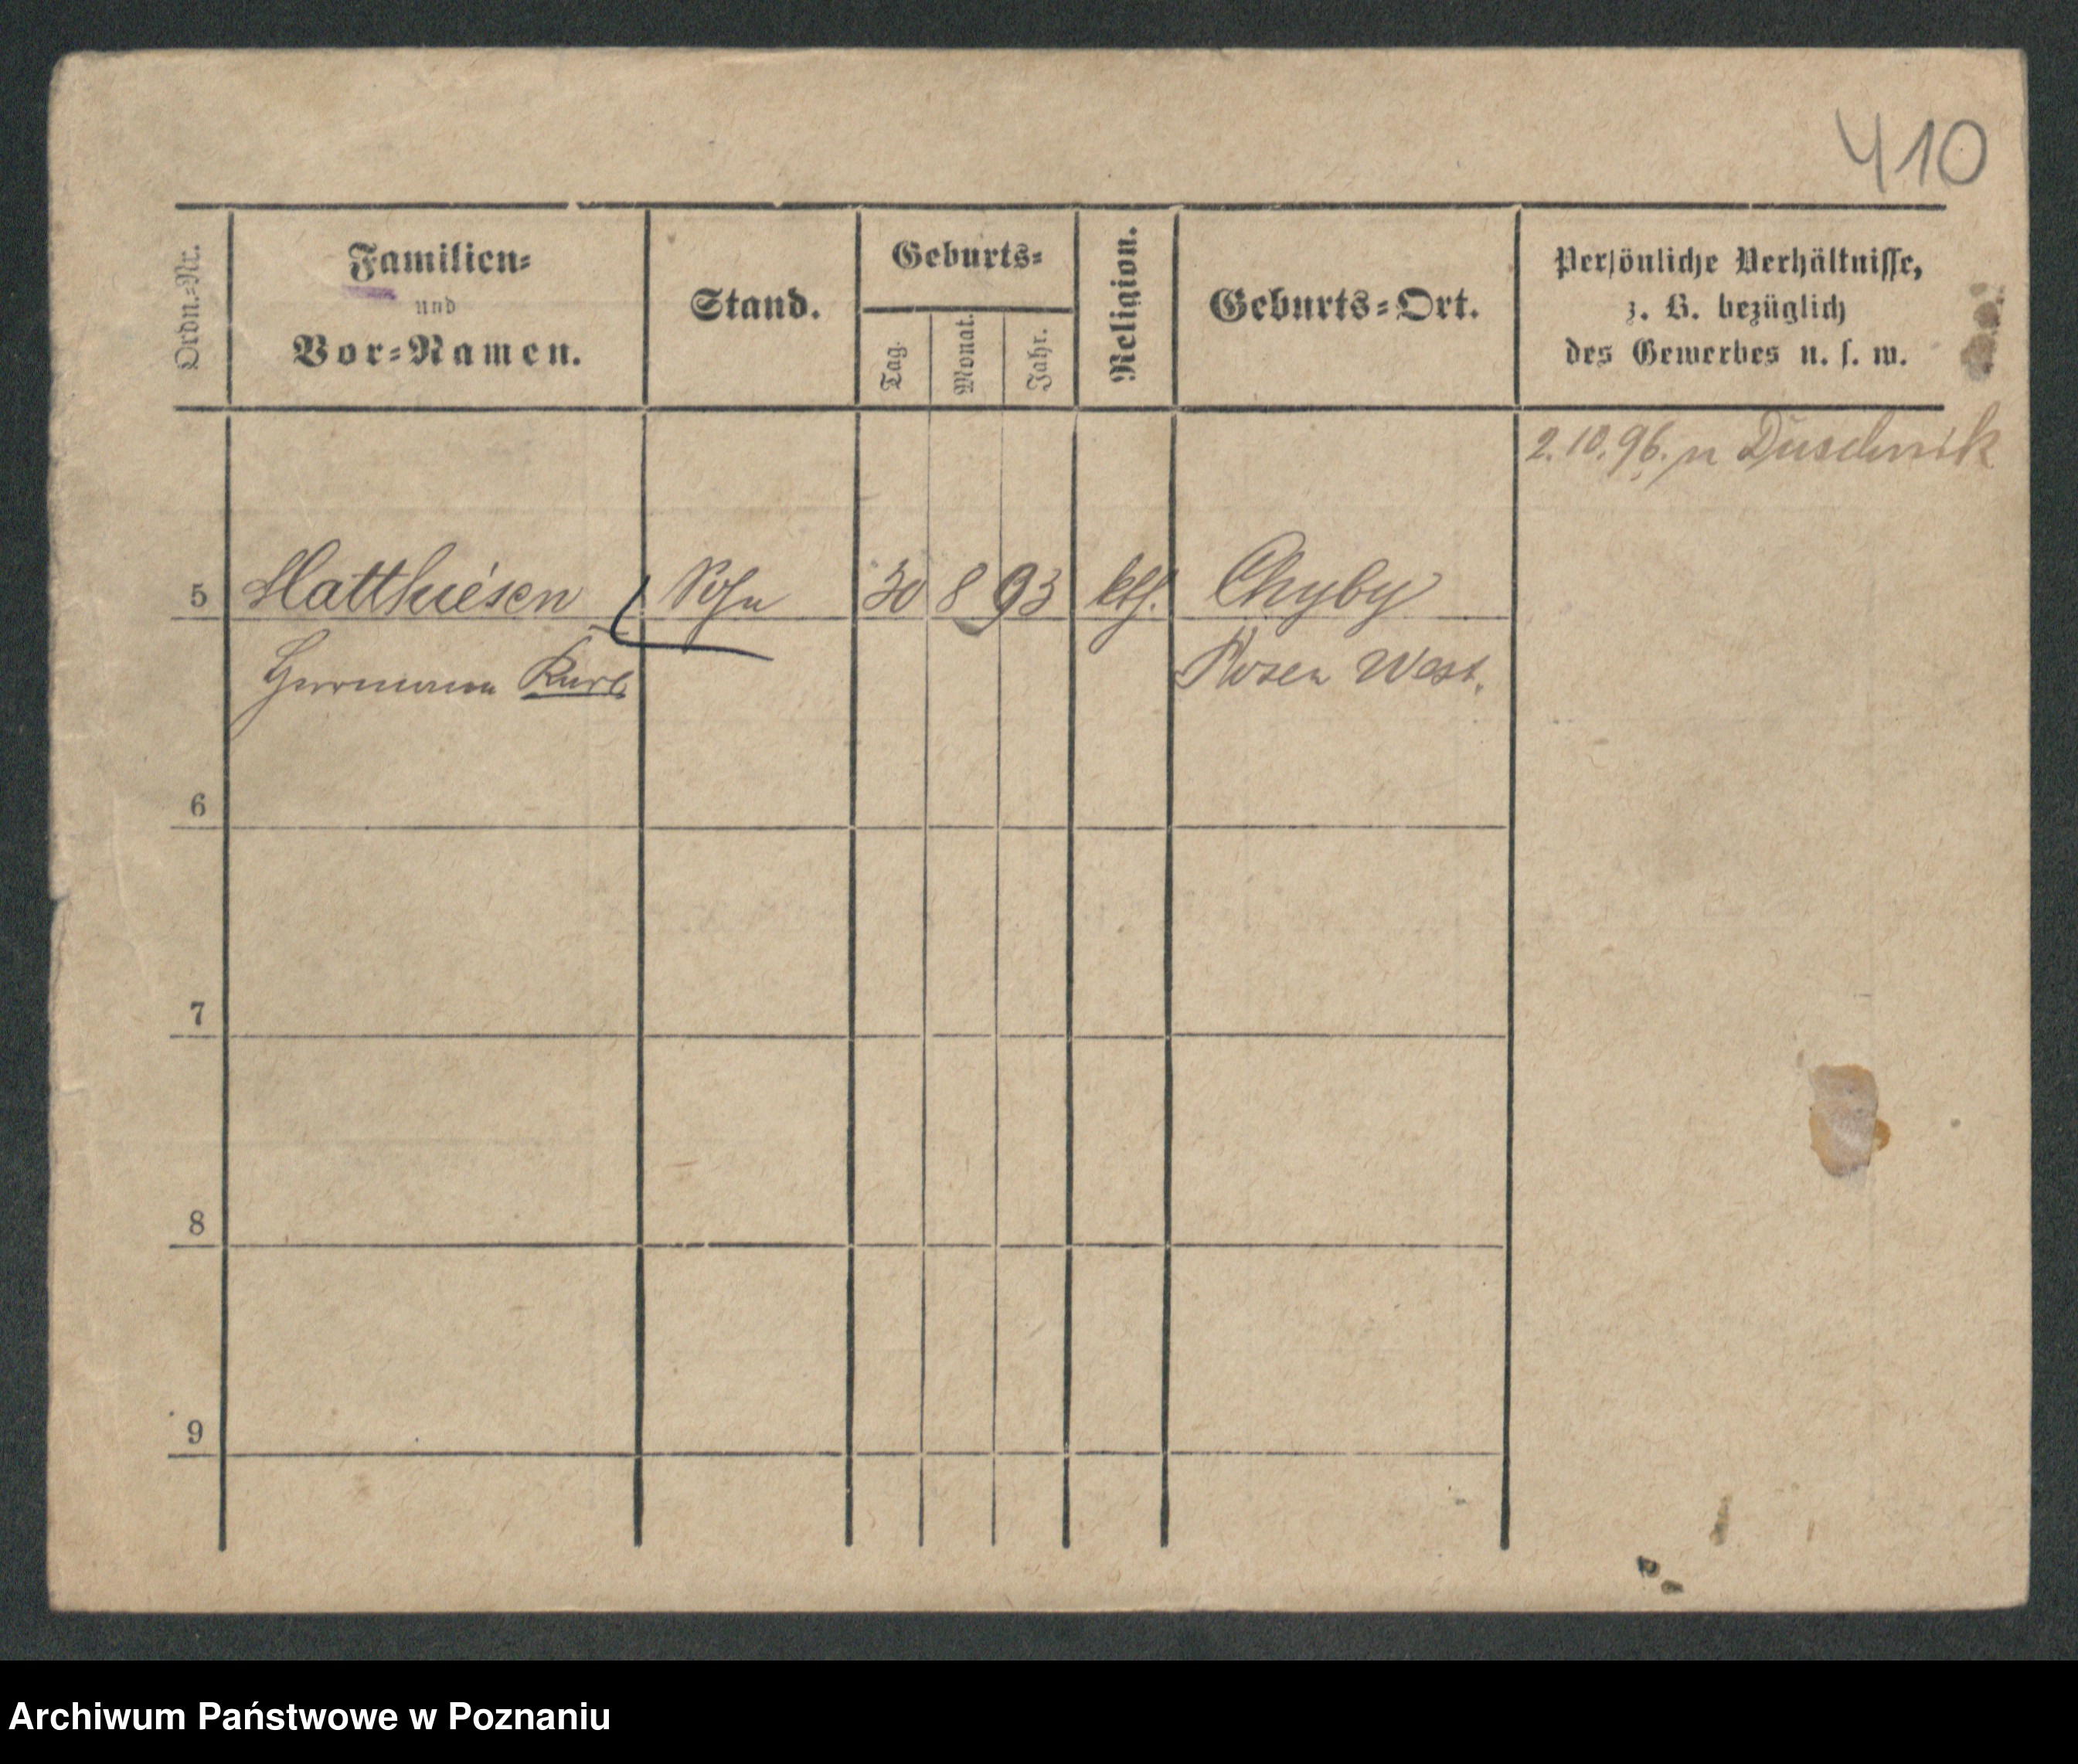 410
Ordn.-Nr.
Familien-
und
Vor-Namen.
Stand.
Geburts-
Tag.
Monat.
Jahr.
Religion.
Geburts-Ort.
Persönliche Verhältnisse,
z. B. bezüglich
des Gewerbes u. s. w.
2.10.96. n Duschnik
5 Matthiesen Sohn 30 8 93 kth. Chyby
Hermann Kurt Posen West.
6
7
8
9
Archiwum Państwowe w Poznaniu